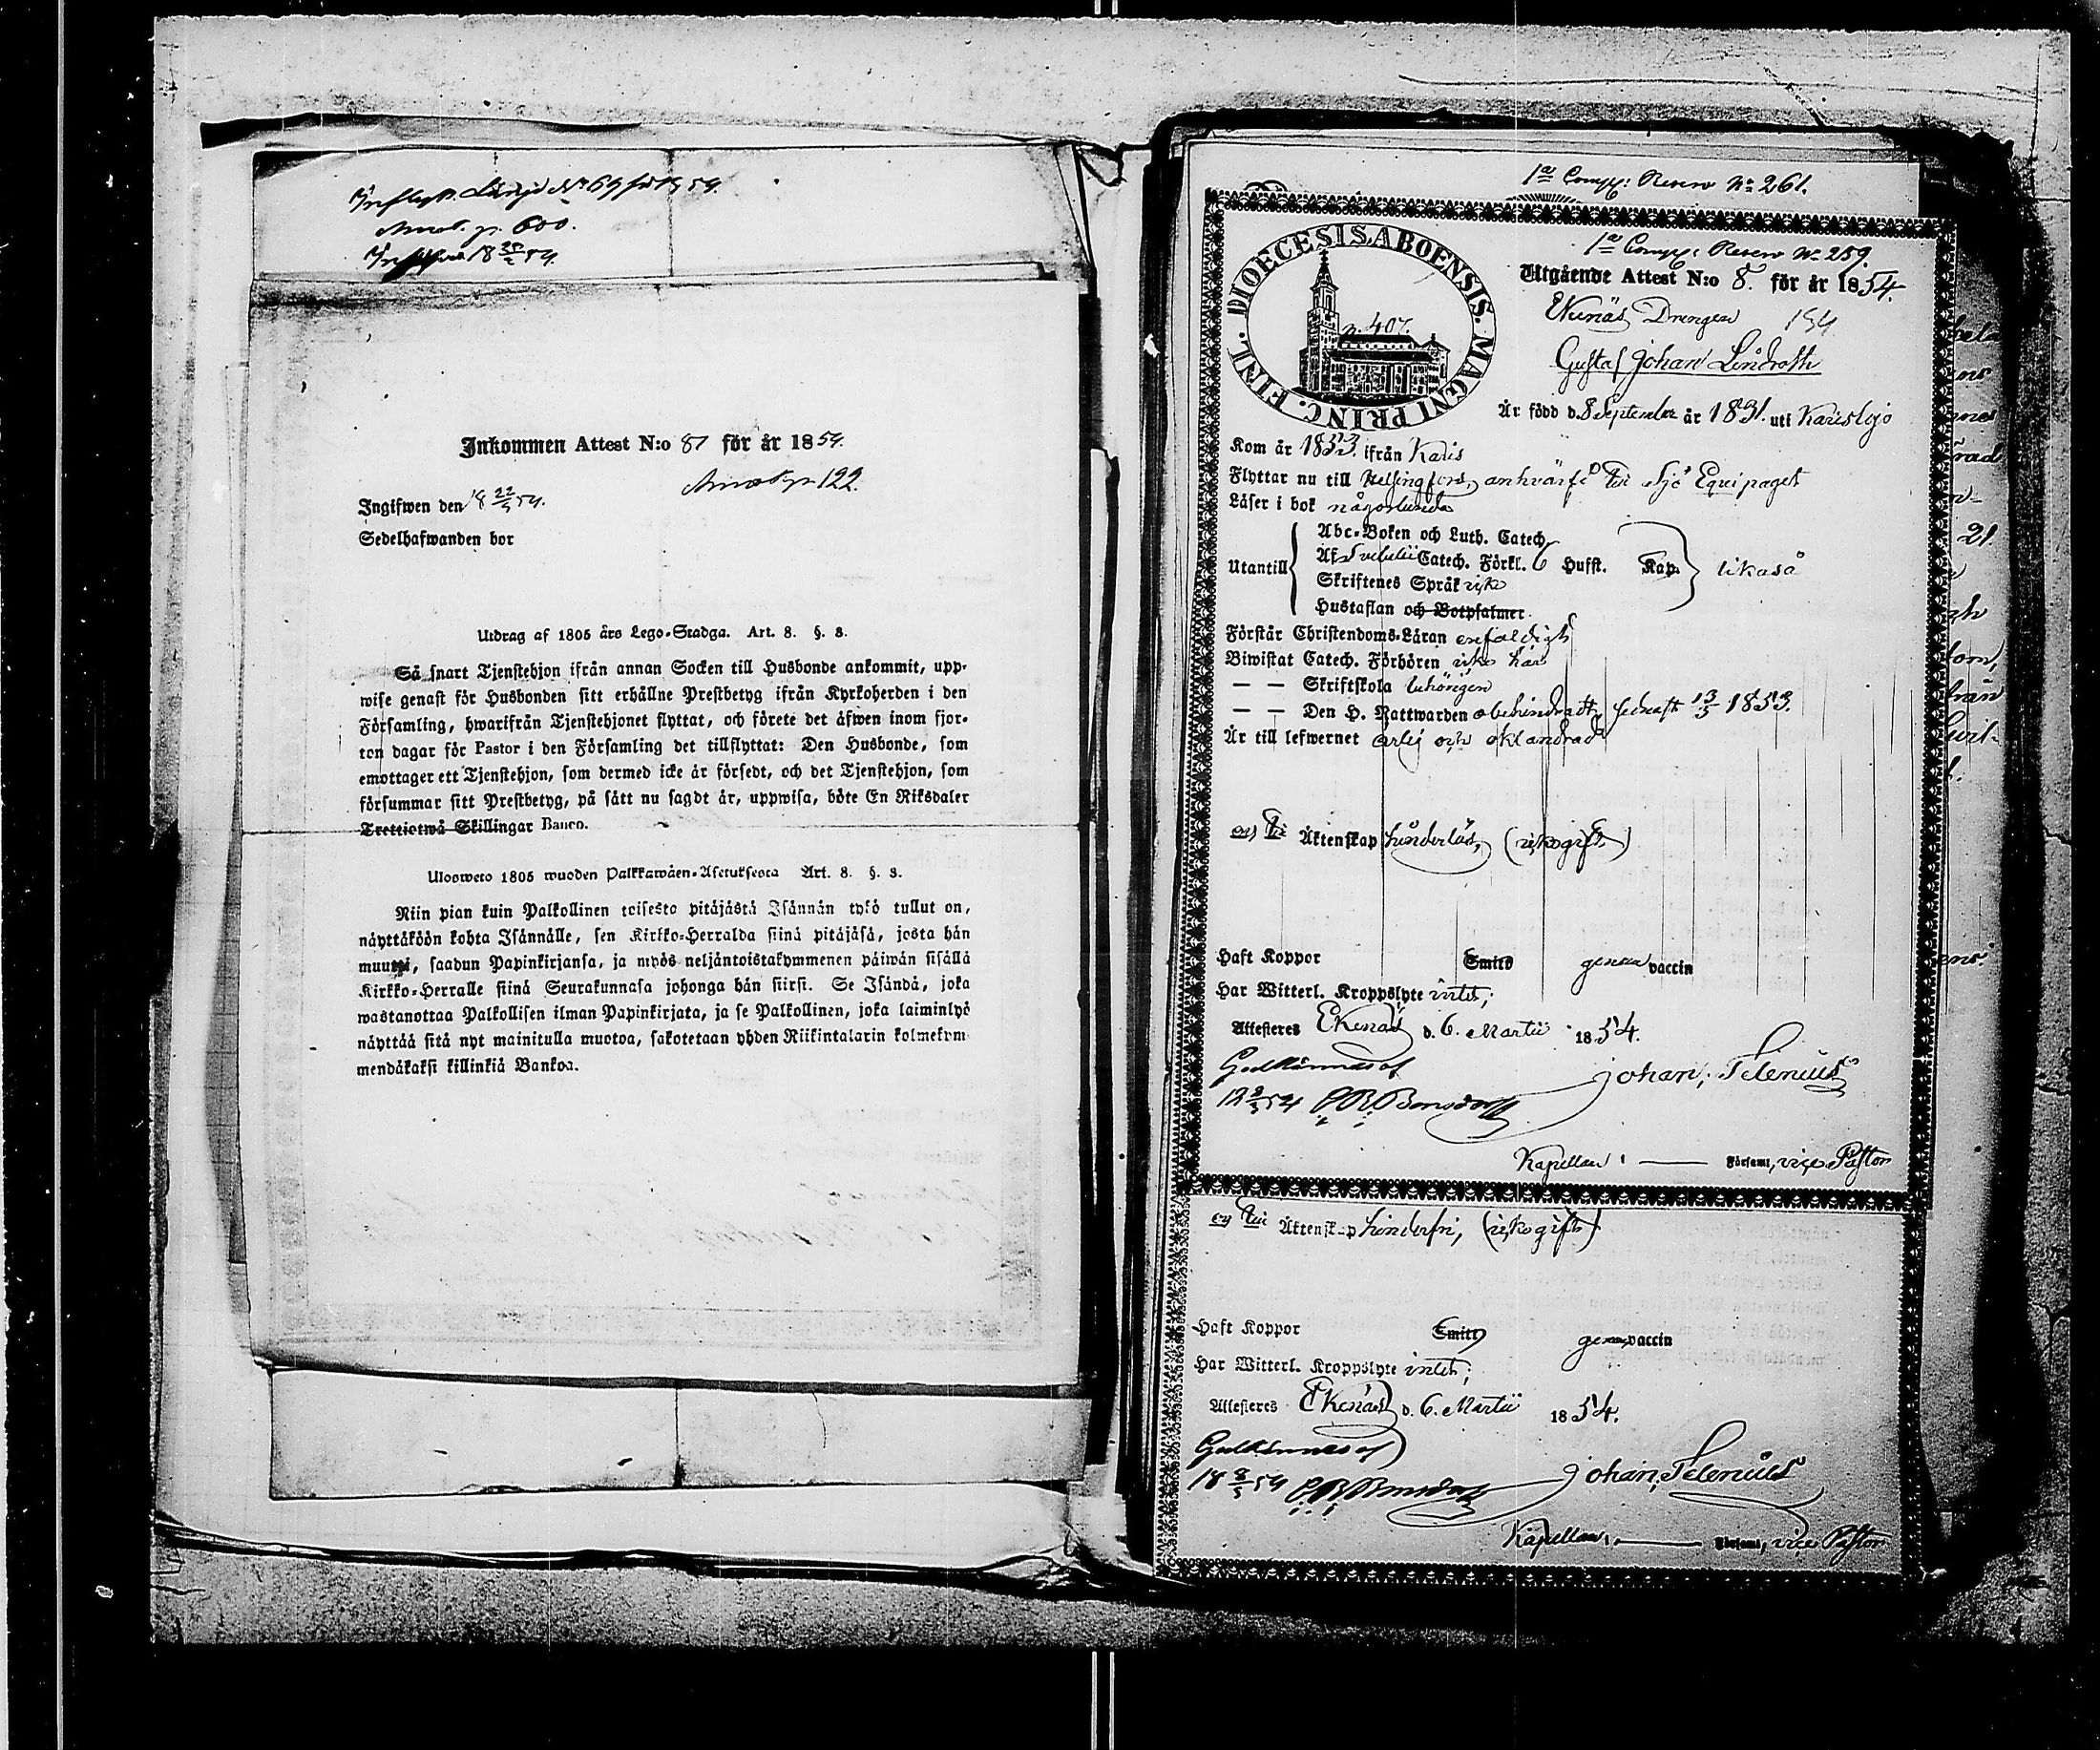 Inflytt. Längd No 69 för 1854.
p. 600.
Inkommen Attest N:o 87 för år 1854.
p 122.
Ingifwen den 18 22/3 54.
Sedelhafwanden bor
Utdrag af 1805 års Lego-Stadga. Art. 8. §. 8.
Så snart Tjenstehjon ifrån annan Socken till Husbonde ankommit, upp-
wise genast för Husbonden sitt erhållne Prestbetyg ifrån Kyrkoherden i den
Församling, hwarifrån Tjenstehjonet flyttat, och förete det äfwen inom fjor-
ton dagar för Pastor i den Församling det tillflyttat: Den Husbonde, som
emottager ett Tjenstehjon, som dermed icke är försedt, och det Tjenstehjon, som
försummar sitt Prestbetyg, på sätt nu sagdt är, uppwisa, böte En Riksdaler
Trettiotwå Skillingar Banco.
Ulosweto 1805 wuoden Palkkawäen-Asetuksesta Art. 8. §. 8.
Niin pian kuin Palkollinen toisesta pitäjästä Isännän tykö tullut on,
näyttäköön kohta Isännälle, sen Kirkko-Herralda siinä pitäjäsä, josta hän
muutti, saadun Papinkirjansa, ja myös neljäntoistakymmenen päiwän sisällä
Kirkko-Herralle siinä Seurakunnasa johonga hän siirsi. Se Isändä, joka
wastanottaa Palkollisen ilman Papinkirjata, ja se Palkollinen, joka laiminlyö
näyttää sitä nyt mainitulla muotoa, sakotetaan yhden Riikintalarin kolmekym-
mendäkaksi killinkiä Bankoa.
1a Comp: Reserv No 261.
1a Comp: Reserv No 259.
DIOECESIS ABOENSIS. MAGNI PRINC. FINL.
p. 407.
Utgående Attest N:o 8. för år 1854.
Ekenäs Drengen 154
Gustaf Johan Lindroth
Är född d. 8 September år 1831. uti Karislojo
Kom år 1853. ifrån Karis
Flyttar nu till Helsingfors, anhvärfd till Sjö Equipaget
Läser i bok någorlunda
Utantill
Abc-Boken och Luth. Catech.
Af Svebelii Catech. Förkl. 6 Hufst. Kap. likaså
Skriftenes Språk icke
Hustaflan och Botpsalmer
Förstår Christendoms-Läran enfaldigt
Biwistat Catech. Förhören icke här
— — Skriftskola behörigen
— — Den H. Nattwarden obehindradt, sednast 13/3 1853.
Är till lefwernet ärlig och oklandrad
ej till Äktenskap hinderlös, (icke gift)
Haft Koppor Smitt genom vaccin
Har Witterl. Kroppslyte intet;
Attesteres Ekenäs d. 6. Martii 1854.
Godkännes af Johan Telenius
18 9/3 54 Bonsdorff
Kapellan: — Församl, vice Pastor
ej till Äktenskap hinderfri, (icke gift)
Haft Koppor Smitt genom vaccin
Har Witterl. Kroppslyte intet;
Attesteres Ekenäs d. 6. Martii 1854.
Godkännes af Johan Telenius
18 8/3 54 Bonsdorff
Kapellan: — Församl, vice Pastor